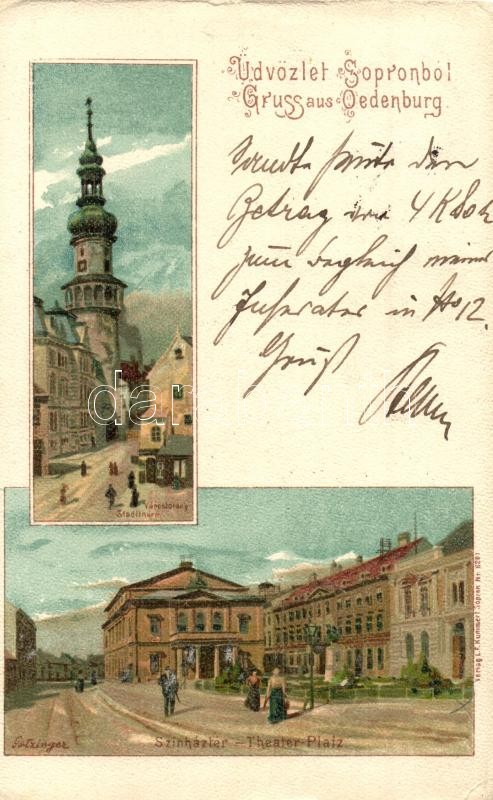 Üdvözlet Sopronból
Gruss aus Oedenburg
sandte heute den
Betrag von 4 K 80 h
zum Ausgleich meines
Inserates in No 12.
Gruß
Várostorony
Stadtthurm
darabanth
Verlag L.F. Kummert Sopron Nr. 6281
Gotzinger
Színháztér – Theater-Platz